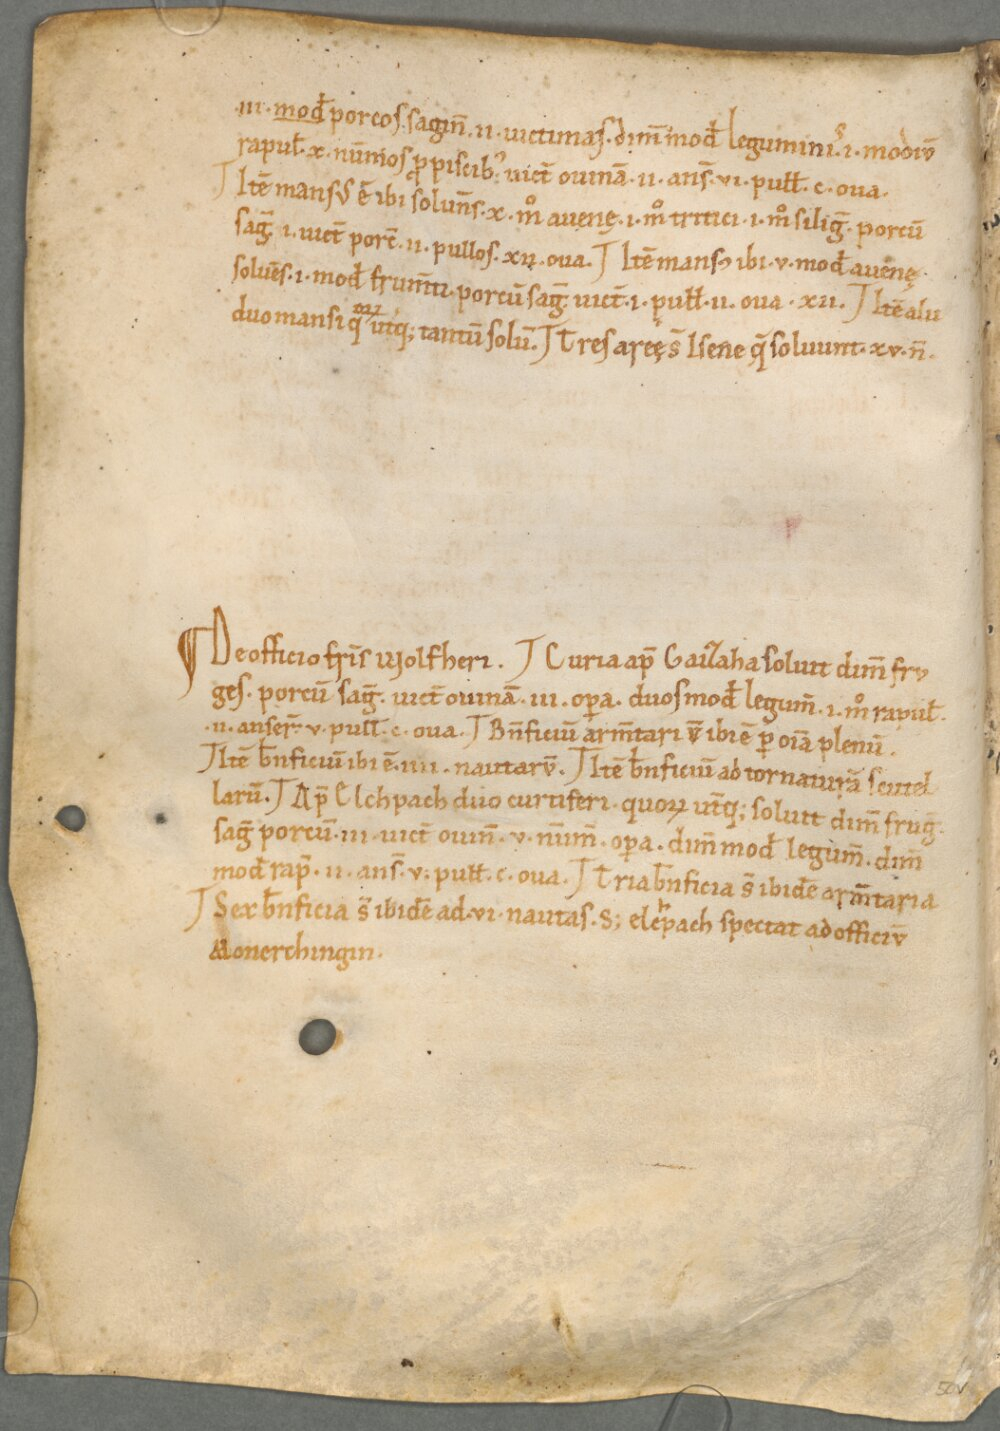 .iii. mod̄ porcos. sagin̄. ii. uictimas. dim̄ mod̄ legumini⁹. i. modiū
rapul̄. x. nūmos p̱ piscib⁹. uict̄ ouinā. ii. ans̄. vi. pull̄. c. oua.
⁊ Itē mansꝰ ē ibi soluēs. x. m̊ auenę. i. m̊ tritici. i. m̊ siliḡ. porcū
saḡ. i. uict̄ porc̄. ii. pullos. xii. oua. ⁊ Itē mansꝰ ibi. v. mod̄ auenę.
soluēs. i. mod̄ frum̄ti. porcū saḡ. uict̄. i. pull̄. ii. oua. xii. ⁊ Itē alii
duo mansi qͦꝝ utq̄; tantū solū. ⁊ Tres aręę s̄ Isene q̄ soluunt. xv. n̄.
¶ De officio fr̄is Wolfheri. ⁊ Curia ap̄ Gailaha soluit dim̄ fru
ges. porcū saḡ. uict̄ ouinā. iii. oꝑa. duos mod̄ legum̄. i. m̊ rapul̄.
.ii. anser̄. v. pull̄. c. oua. ⁊ Bn̄ficiū arm̄tari ū ibi ē ꝑ oīa plenū.
⁊ Itē bn̄ficiū ibi ē. iiii. nautarū. ⁊ Itē bn̄ficiū ad tornaturā scutel
larū. ⁊ Ap̄ Elchpach duo curtiferi. quoꝝ utq̄; soluit dim̄ fruḡ.
saḡ porcū. iii. uict̄ ouin̄. v. nūm̄. oꝑa. dim̄ mod̄ legum̄. dim̄
mod̄ rap̄. ii. ans̄. v. pull̄. c. oua. ⁊ Tria bn̄ficia s̄ ibidē arm̄taria
⁊ Sex bn̄ficia s̄ ibidē ad. vi. nautas. S; elchpach spectat ad officiū
Monerchingin.
50v